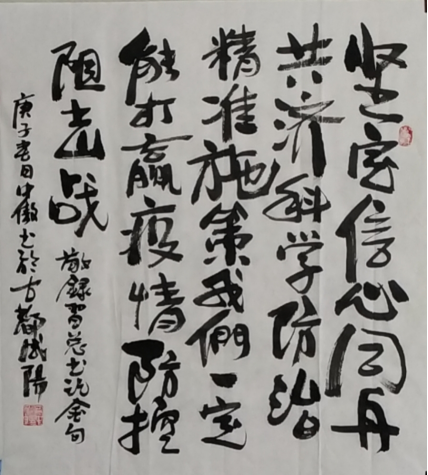 坚定信心同舟
共济科学防治
精准施策我們一定
能打赢疫情防控
阻击战
敬録習总书记金句
庚子春日中书於古都咸陽